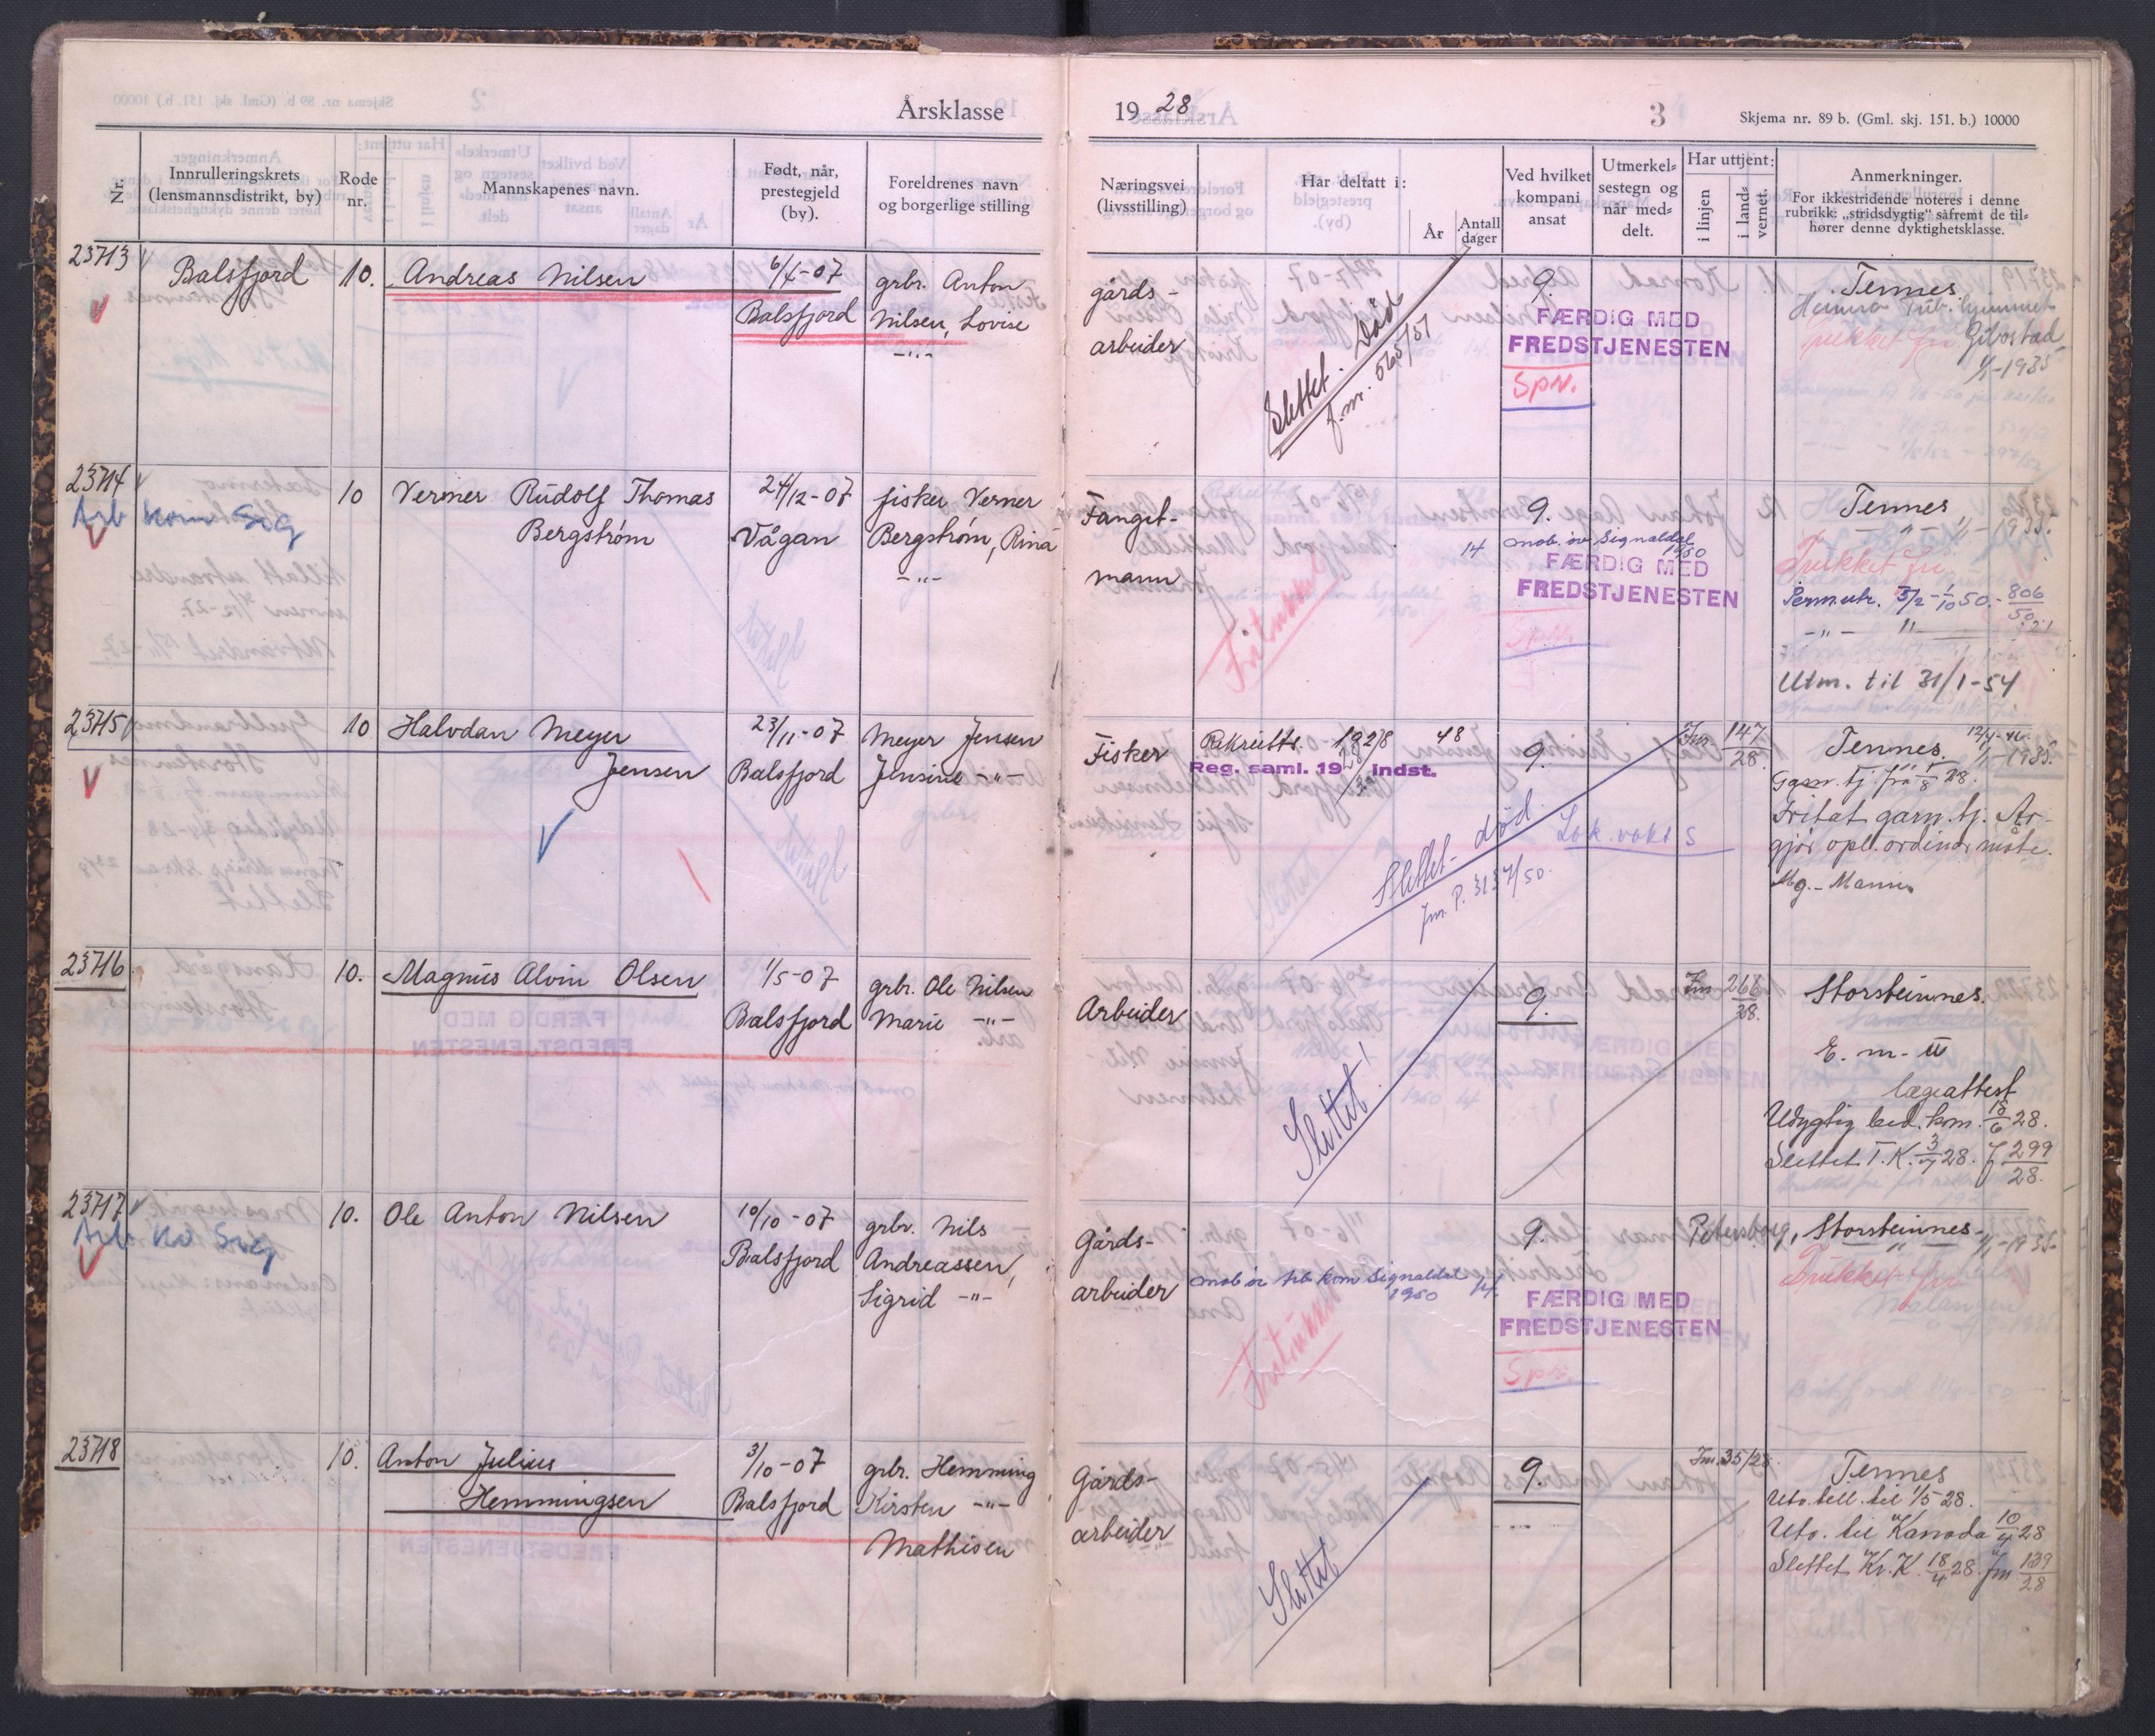 Årsklasse
19 28
3
Skjema nr. 89 b. (Gml. skj. 151. b.) 10000
Nr.
Innrulleringskrets
(lensmannsdistrikt, by)
Rode
nr.
Mannskapenes navn.
Født, når,
prestegjeld
(by).
Foreldrenes navn
og borgerlige stilling
Næringsvei
(livsstilling)
Har deltatt i:
År
Antall
dager
Ved hvilket
kompani
ansat
Utmerkel-
sestegn og
når med-
delt.
Har uttjent:
i linjen
i land-
vernet.
Anmerkninger.
For ikkestridende noteres i denne
rubrikk: „stridsdygtig" såfremt de til-
hører denne dyktighetsklasse.
23713
Balsfjord
10.
Andreas Nilsen
Balsfjord
grbr. Anton
Nilsen, Lovise
-"-
gårds-
arbeider
Slettet. Død
f.nr. 565/51
9.
FÆRDIG MED
FREDSTJENESTEN
Spv.
Tennes.
Gibostad
1/1-1935
23714
Arb kom Sig
10
Verner Rudolf Thomas
Bergstrøm
24/12-07
Vågan
fisker Verner
Bergstrøm, Rina
-"-
Fangst-
mann
14
9.
mob. øv Signaldal
1950
FÆRDIG MED
FREDSTJENESTEN
Tennes
" 1/1-1935.
Trukket fri
Perm.utr. 3/2-1/10 50.- 806/50
-"- "
Utm. til 31/1-54
23715
10
Halvdan Meyer
Jensen
23/11-07
Balsfjord
Meyer Jensen
Jensine -"-
Fisker
Rekrutts. 1928 48
Reg. saml. 1928 indst.
Slettet- død
Jnr. P. 3137/50.
9.
Lok. vakt S
Jnr. 147/28
Tennes.
1/1-1935.
Garn. tj. fra 1/8 28.
Fritat garn. tj. Av-
gjør opl. ordinær måte.
Mg.- Mann.
23716
10.
Magnus Alvin Olsen
1/5-07
Balsfjord
grbr. Ole Nilsen
Marie -"-
Arbeider
Slettet!
9.
Jnr 266/28.
Storsteinnes.
E. m. II
lægeattest
Udygtig bed. kom. 18/6 28.
Slettet T. K. 3/7 28. J 299/28.
23717
Arb ko Sig
10.
Ole Anton Nilsen
10/10-07
Balsfjord
grbr. Nils
Andreassen,
Sigrid -"-
Gårds-
arbeider
mob øv Arb kom Signaldal 14.
1950
9.
FÆRDIG MED
FREDSTJENESTEN
Spv.
Petersborg, Storsteinnes-
" 1/1-1935-
Trukket fri
23718
10.
Anton Julius
Hemmingsen
3/10-07
Balsfjord
grbr. Hemming
Kirsten -"-
Mathisen
Gårds-
arbeider
Slettet
9.
Jnr. 35/28.
Tennes
Utv. till. til 1/5 28.
Utv. til Kanada 10/4 28
Slettet Kr. K. 18/4 28. Jnr 139/28